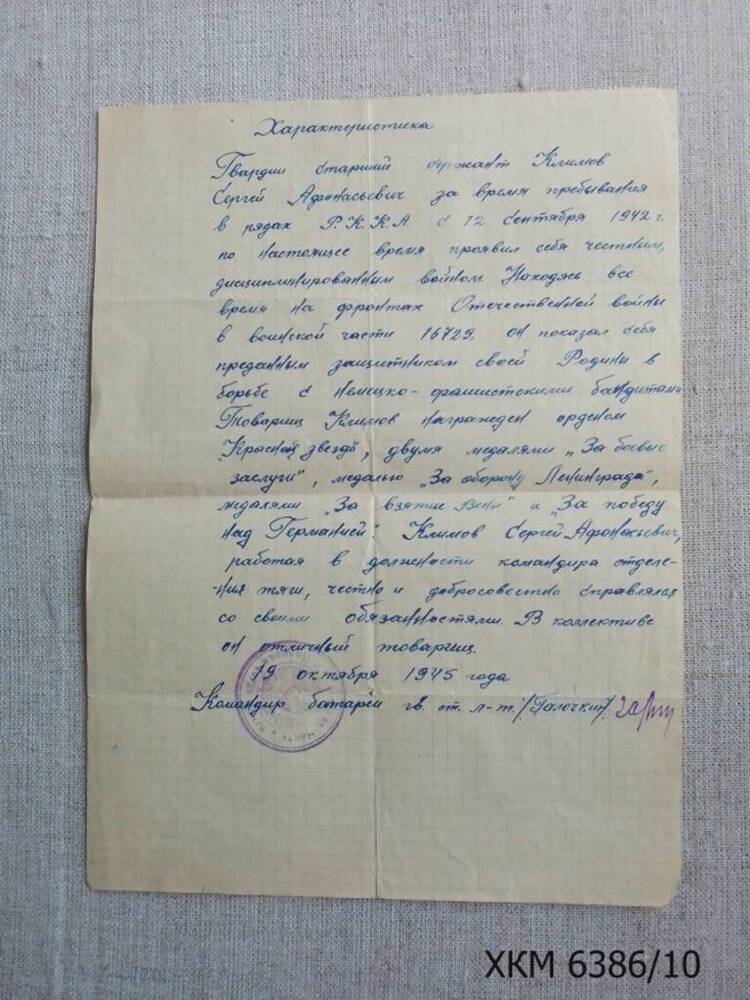 Характеристика
Гвардии старший сержант Климов
Сергей Афонасьевич за время пребывания
в рядах Р.К.К.А. с 12 сентября 1942 г.
по настоящее время проявил себя честным,
дисциплинированным войном. Находясь все
время на фронтах Отечественной войны
в воинской части 16729, он показал себя
преданным защитником своей Родины в
борьбе с немецко-фашистскими бандитами
Товарищ Климов награжден орденом
"Красной звезды", двумя медалями „За боевые
заслуги", медалью „За оборону Ленинграда",
медалями „За взятие Вены" и „За победу
над Германией". Климов Сергей Афонасьевич,
работая в должности командира отделе-
-ния тяги, честно и добросовестно справлялся
со своими обязанностями. В коллективе
он отличный товарищ.
19 октября 1945 года
Командир батареи гв. ст. л-т. /Палочкин/
ХКМ 6386/10